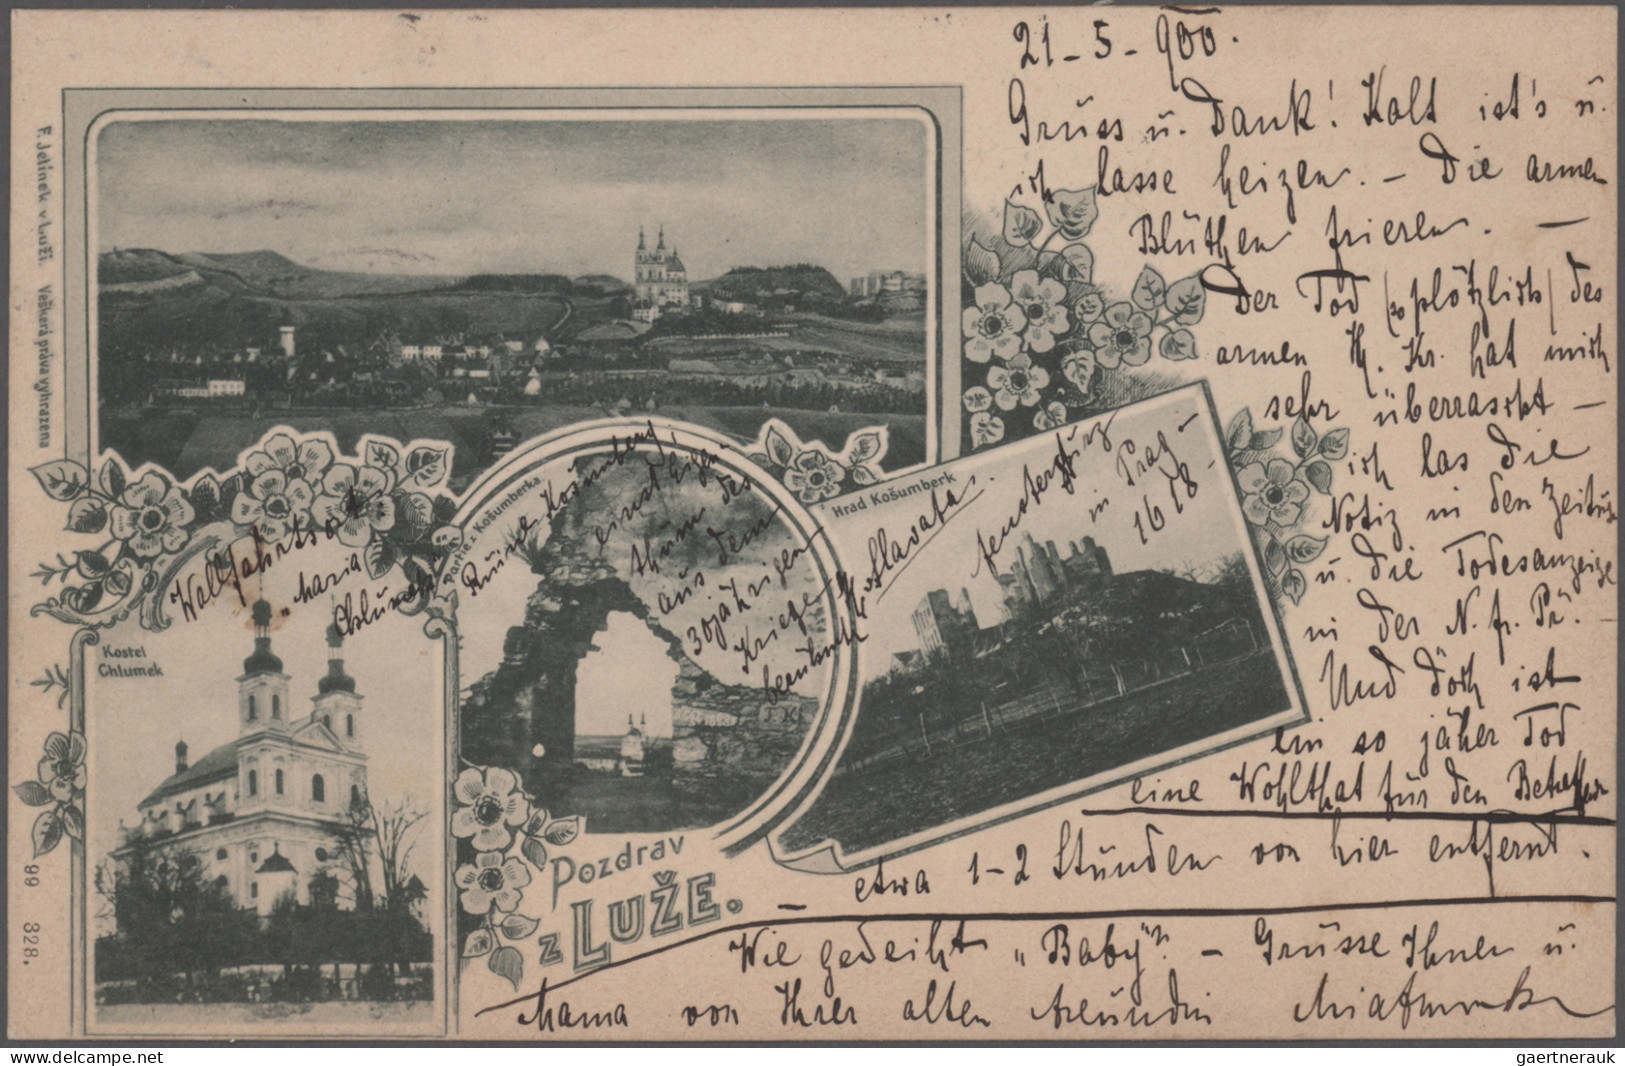 21 - 5 - 900.
Gruss u. Dank! Kalt ist's u.
ich lasse heizen. - Die armen
Blüthen frieren. -
Der Tod (so plötzlich) des
armen H. Kr. hat mich
sehr überrascht -
ich las die
Notiz in den Zeitung
u. die Todesanzeige
in der N. fr. Pr. -
Und doch ist
ein so jäher Tod
eine Wohlthat für den Betreffenden
- etwa 1-2 Stunden von hier entfernt.
Wie gedeiht "Baby"? - Grüsse Ihnen u.
Mama von Ihrer alten Freundin
F. Jelínek v Luži. Veškerá práva vyhrazena
99 828.
Wallfahrtsort
"Maria
Chlumek
Kostel
Chlumek
Partie z Košumberka.
Ruine Košumberg,
einst Eigen
thum des
aus dem
30jährigen
Kriege
berühmten
Slavata.
Hrad Košumberk
Fenstersturz
in Prag -
1618 -
Pozdrav
z LUŽE.
gaertnerauk@ebay.com